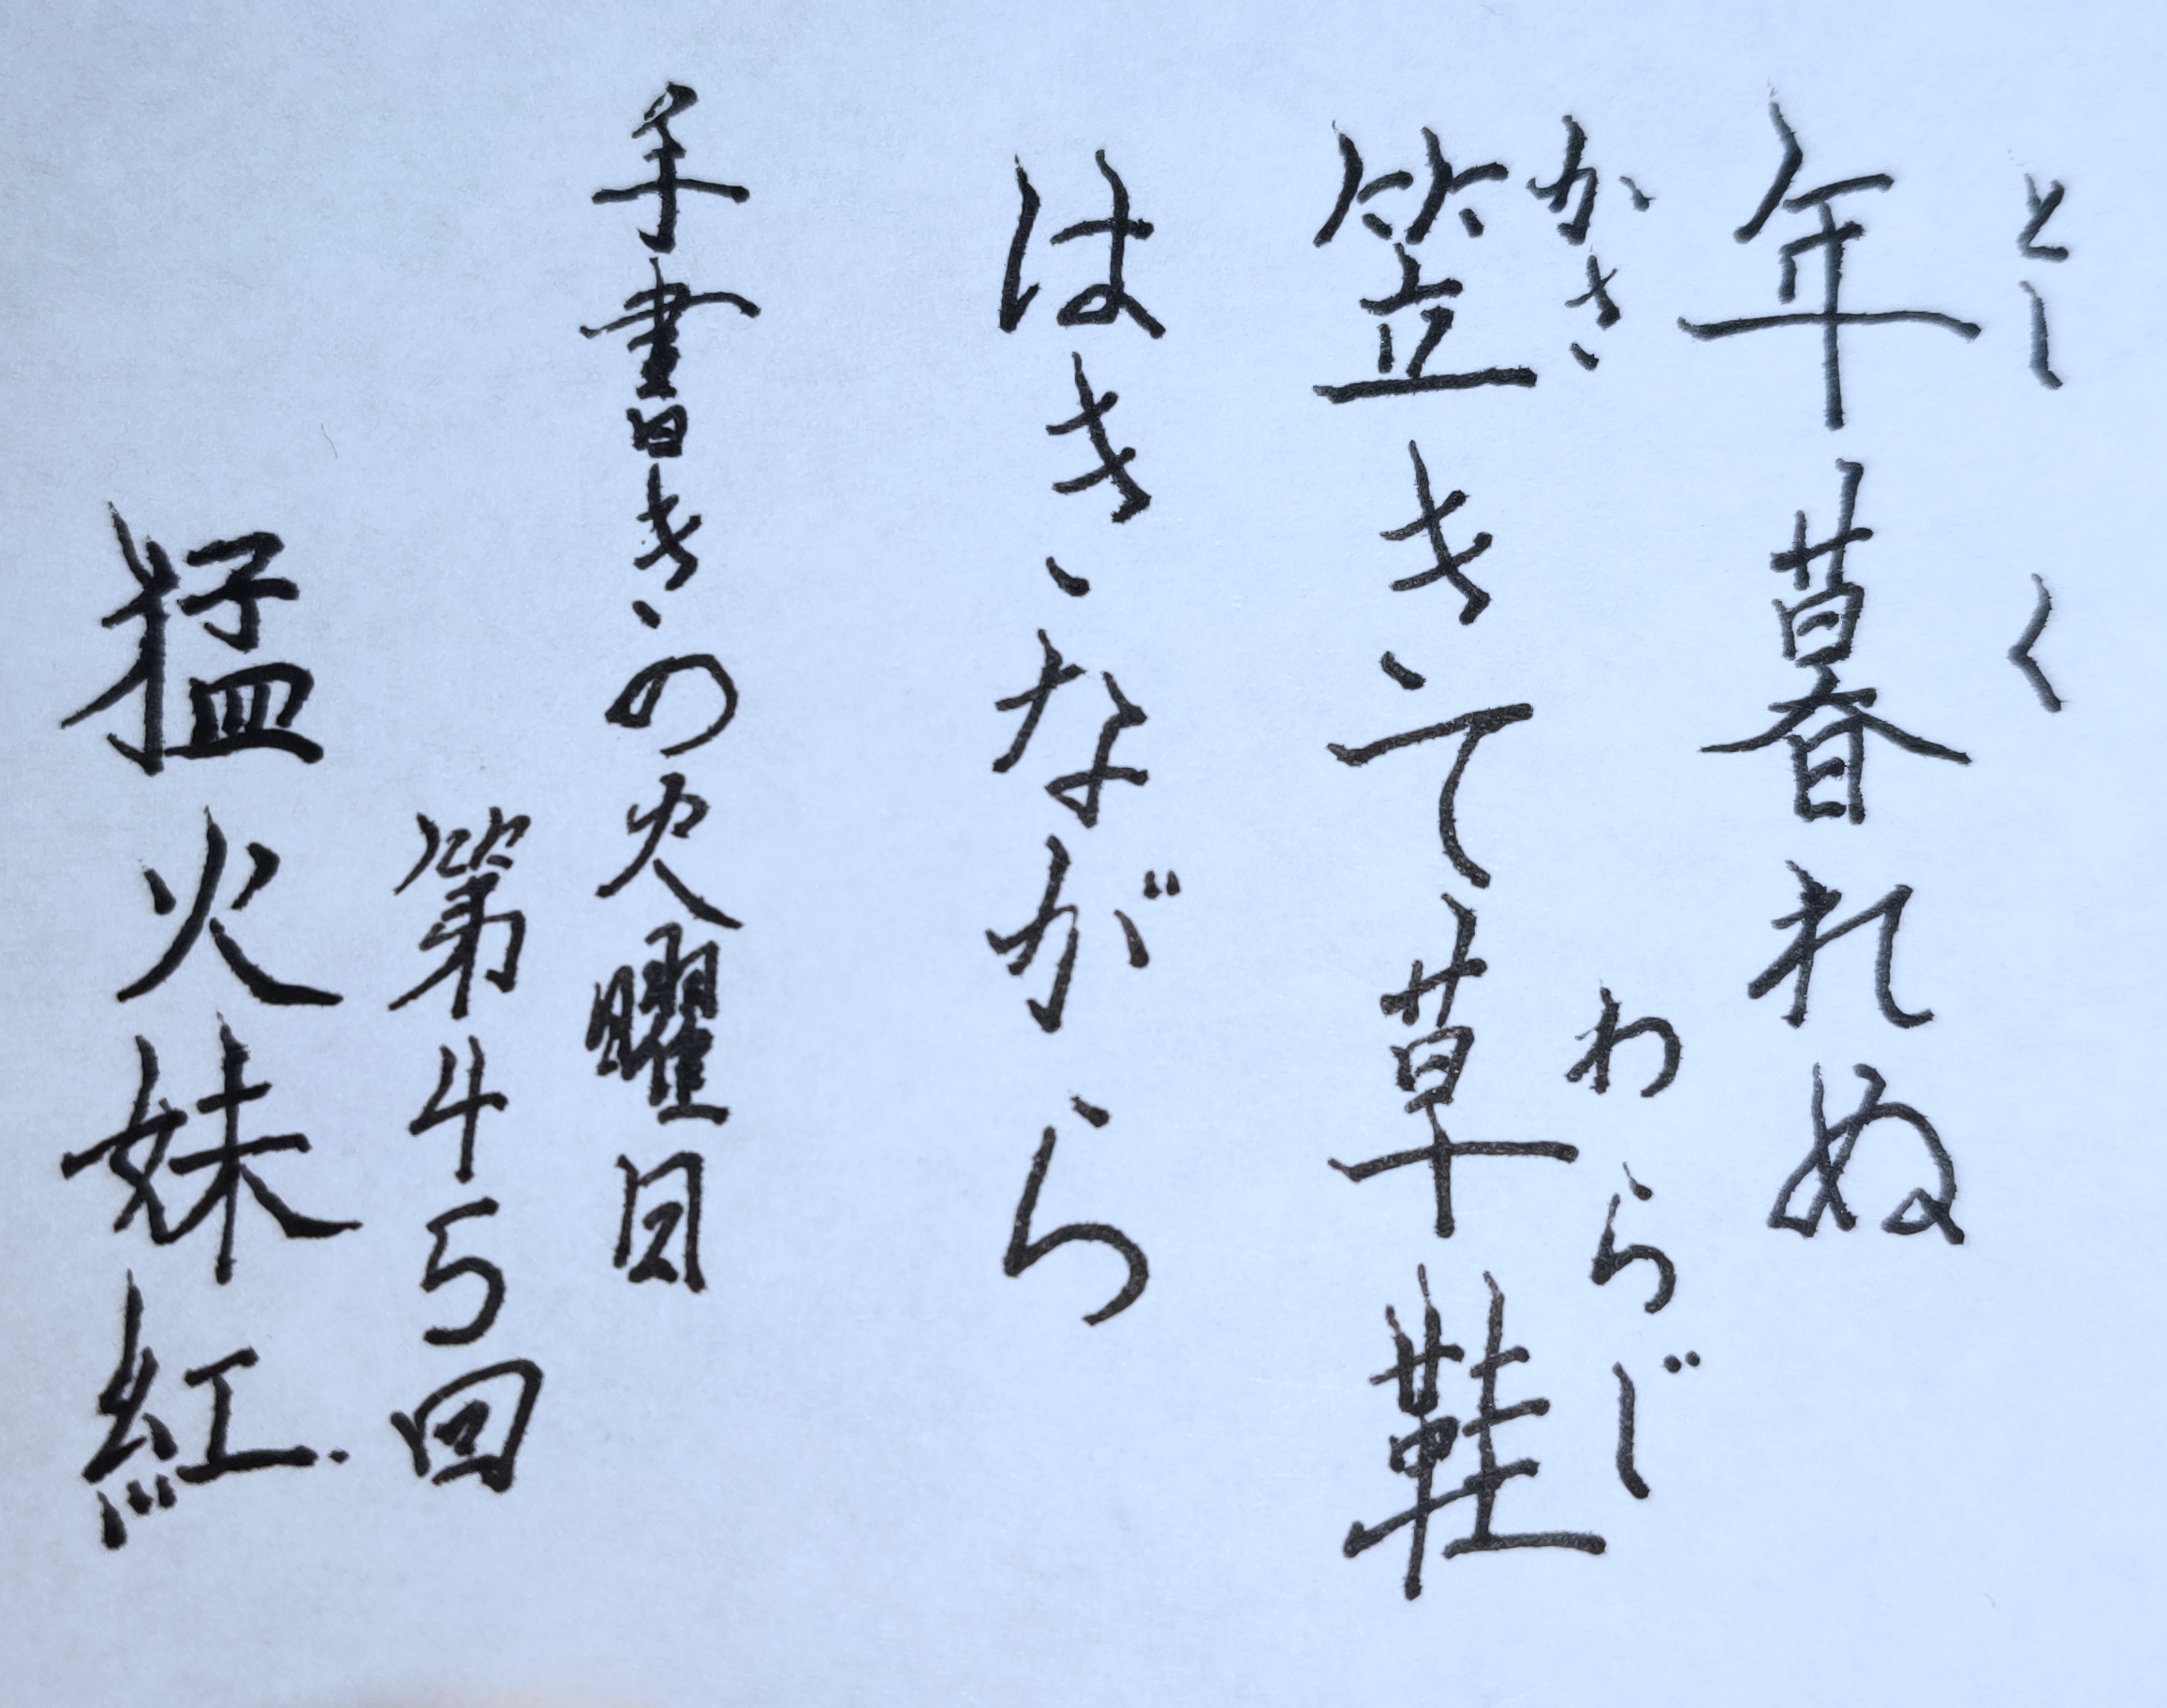 とし く
年暮れぬ
かさ わらじ
笠きて草鞋
はきながら
手書きの火曜日
第45回
猛火妹紅.